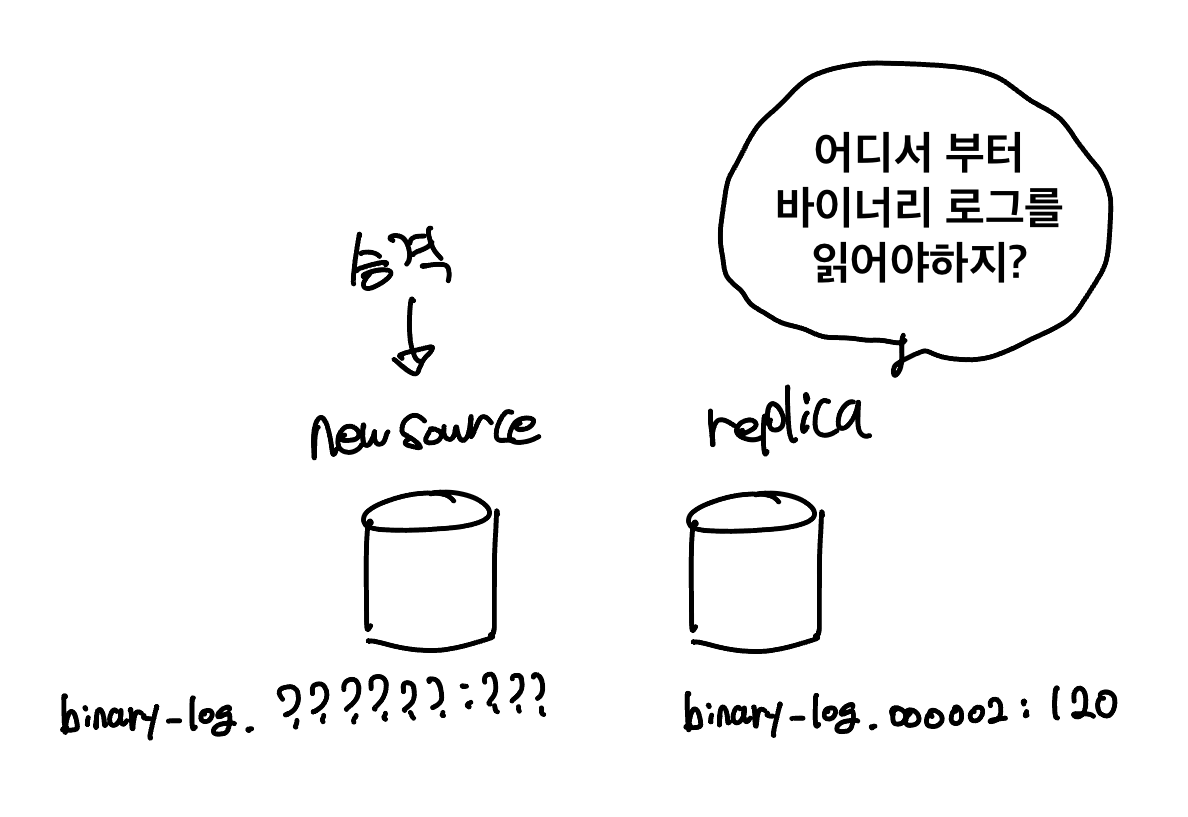 어디서 부터
바이너리 로그를
읽어야하지?
승격
new source
replica
binary-log. ??????:???
binary-log.000002:120